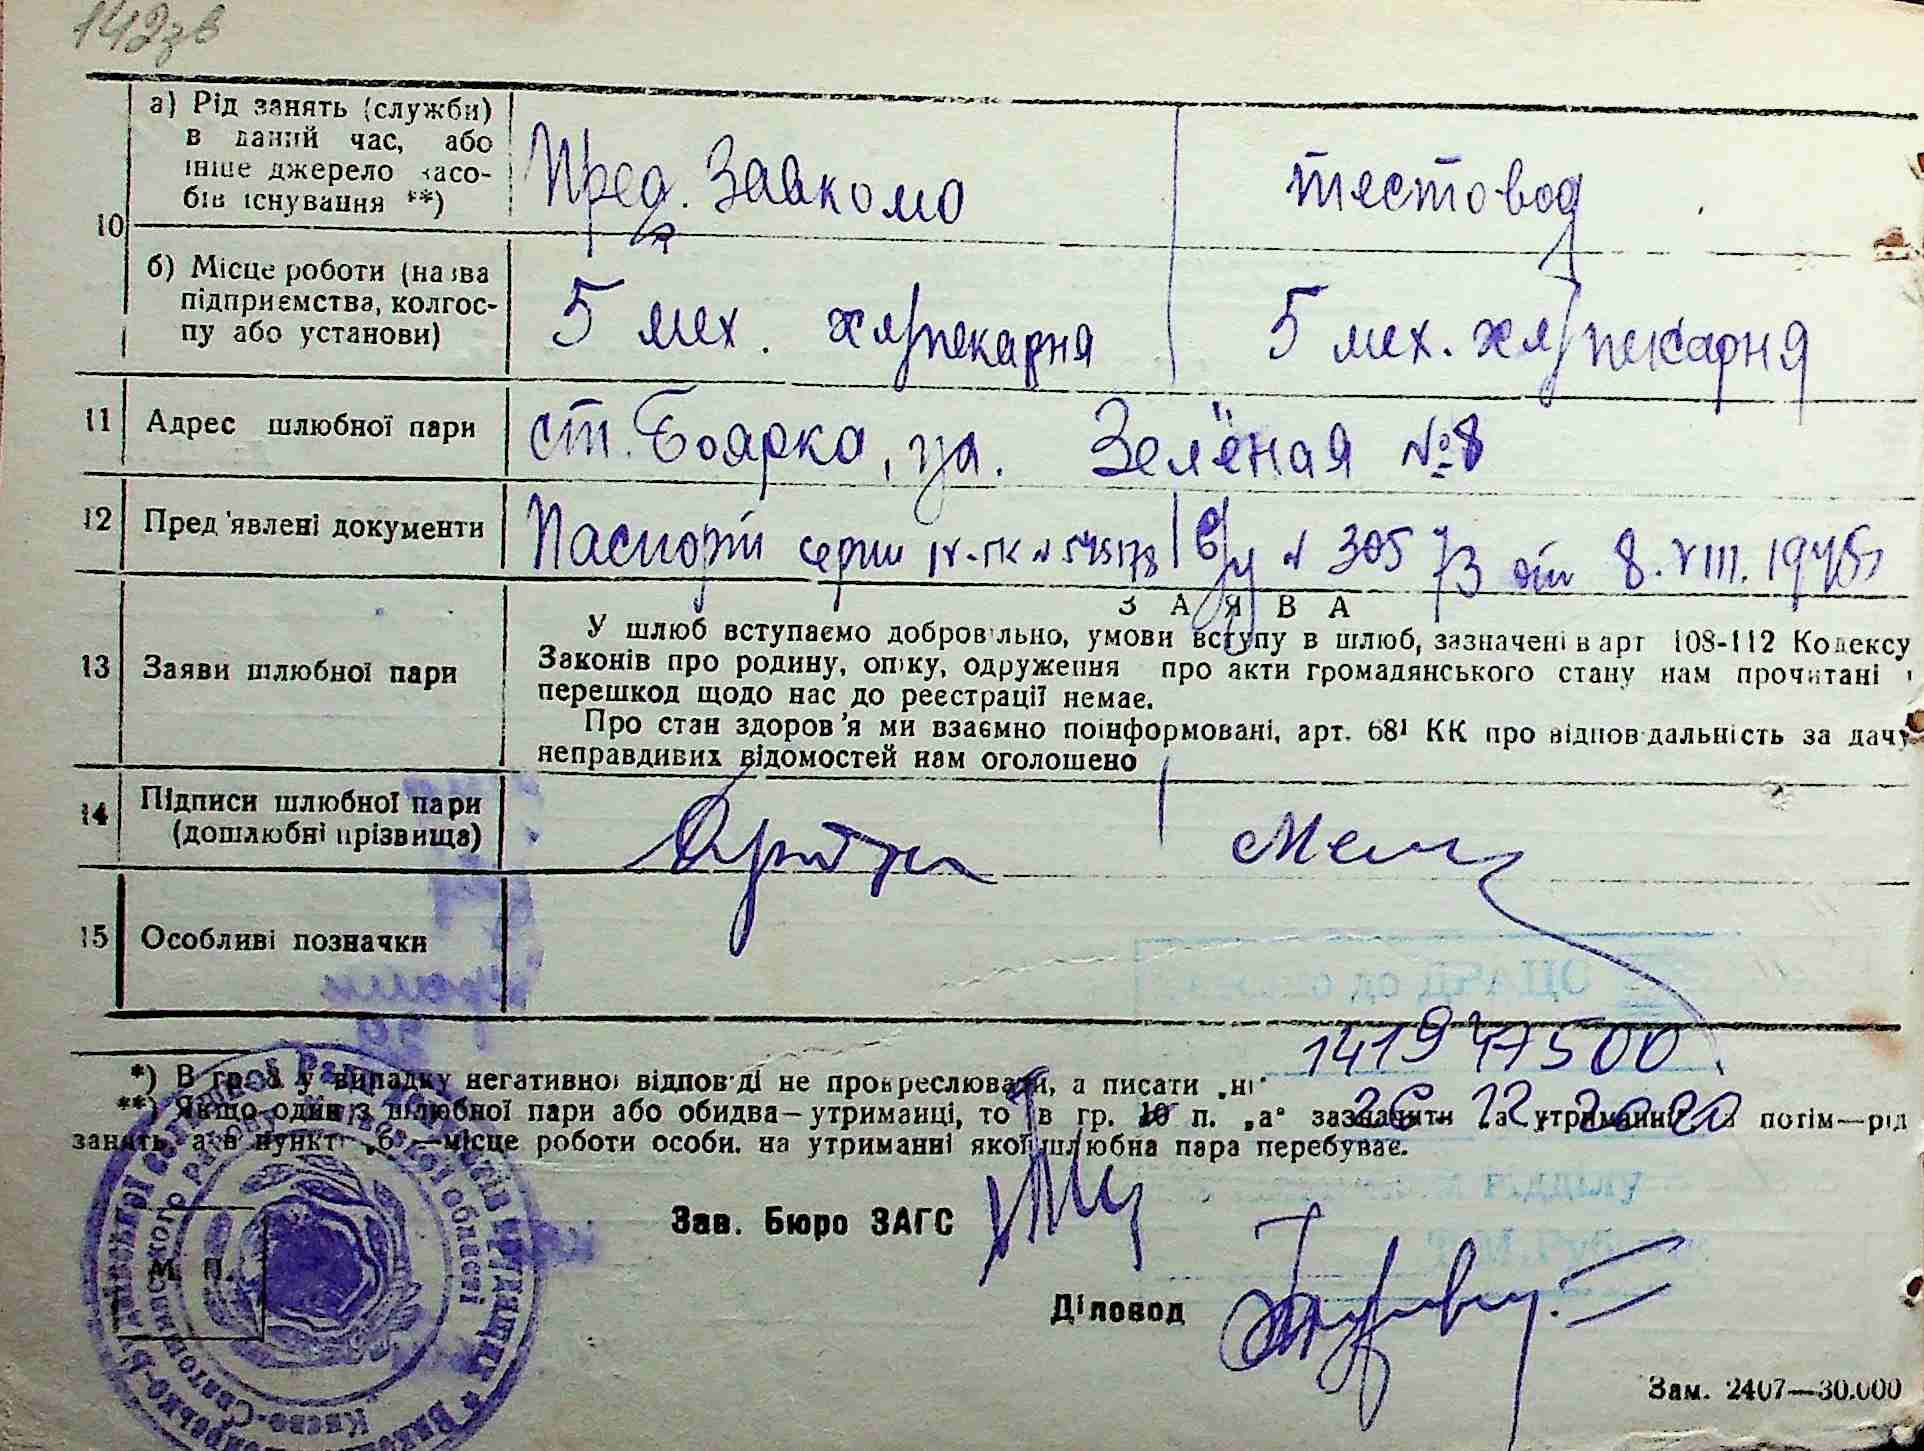 142зв
10
а) Рід занять (служби)
в даний час, або
інше джерело засо-
бів існування **)
Пред. Завкома
тестовод
б) Місце роботи (назва
підприємства, колгос-
пу або установи)
5 мех. хл/пекарня
5 мех. хл/пекарня
11 Адрес шлюбної пари
ст. Боярка, ул. Зелёная №8
12 Пред'явлені документи
Паспорт серии IV-ПК № 545178
в/у № 305 73 от 8.VIII.1945г
ЗАЯВА
13 Заяви шлюбної пари
У шлюб вступаємо добровільно, умови вступу в шлюб, зазначені в арт 108-112 Кодексу
Законів про родину, опіку, одруження про акти громадянського стану нам прочитані і
перешкод щодо нас до реєстрації немає.
Про стан здоров'я ми взаємно поінформовані, арт. 68¹ КК про відповідальність за дачу
неправдивих відомостей нам оголошено
14 Підписи шлюбної пари
(дошлюбні прізвища)
15 Особливі позначки
141947500
*) В гр. 8 у випадку негативної відповіді не прокреслювати, а писати „ні"
26 12 2020
**) Якщо один з шлюбної пари або обидва—утриманці, то в гр. 10 п. „а" зазначити а потім—рід
занять, а в пункті „б"—місце роботи особи, на утриманні якої шлюбна пара перебуває.
М. П.
Зав. Бюро ЗАГС
Діловод
Зам. 2407—30.000